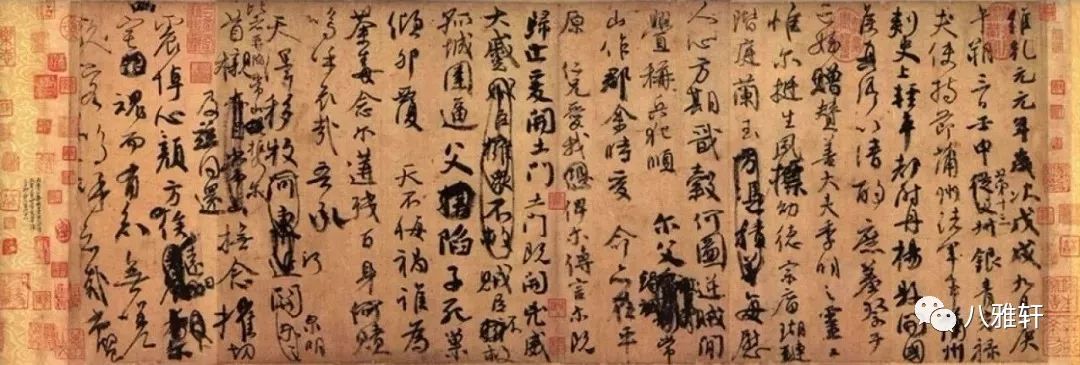 維乾元元年歲次戊戌九月庚
午朔三日壬申第十三從父叔銀青光祿
夫使持節蒲州諸軍事蒲州
刺史上輕車都尉丹楊縣開國
侯真卿以清酌庶羞祭于
亡姪贈贊善大夫季明之靈曰
惟爾挺生夙標幼德宗廟瑚璉
階庭蘭玉方憑積善每慰
人心方期戩穀何圖逆賊閒
釁稱兵犯順爾父竭誠常
山作郡余時受命亦在平
原仁兄愛我俾爾傳言爾既
歸止爰開土門土門既開凶威
大蹙賊臣擁眾不救賊臣不救
孤城圍逼父陷子死巢
傾卵覆天不悔禍誰為
荼毒念爾遘殘百身何贖
嗚乎哀哉吾承
天澤移牧河關泉明
比者再陷常山携爾
首櫬及茲同還撫念摧切
震悼心顏方俟遠日
宅魂而有知無嗟
久客嗚呼哀哉尚饗
八雅轩